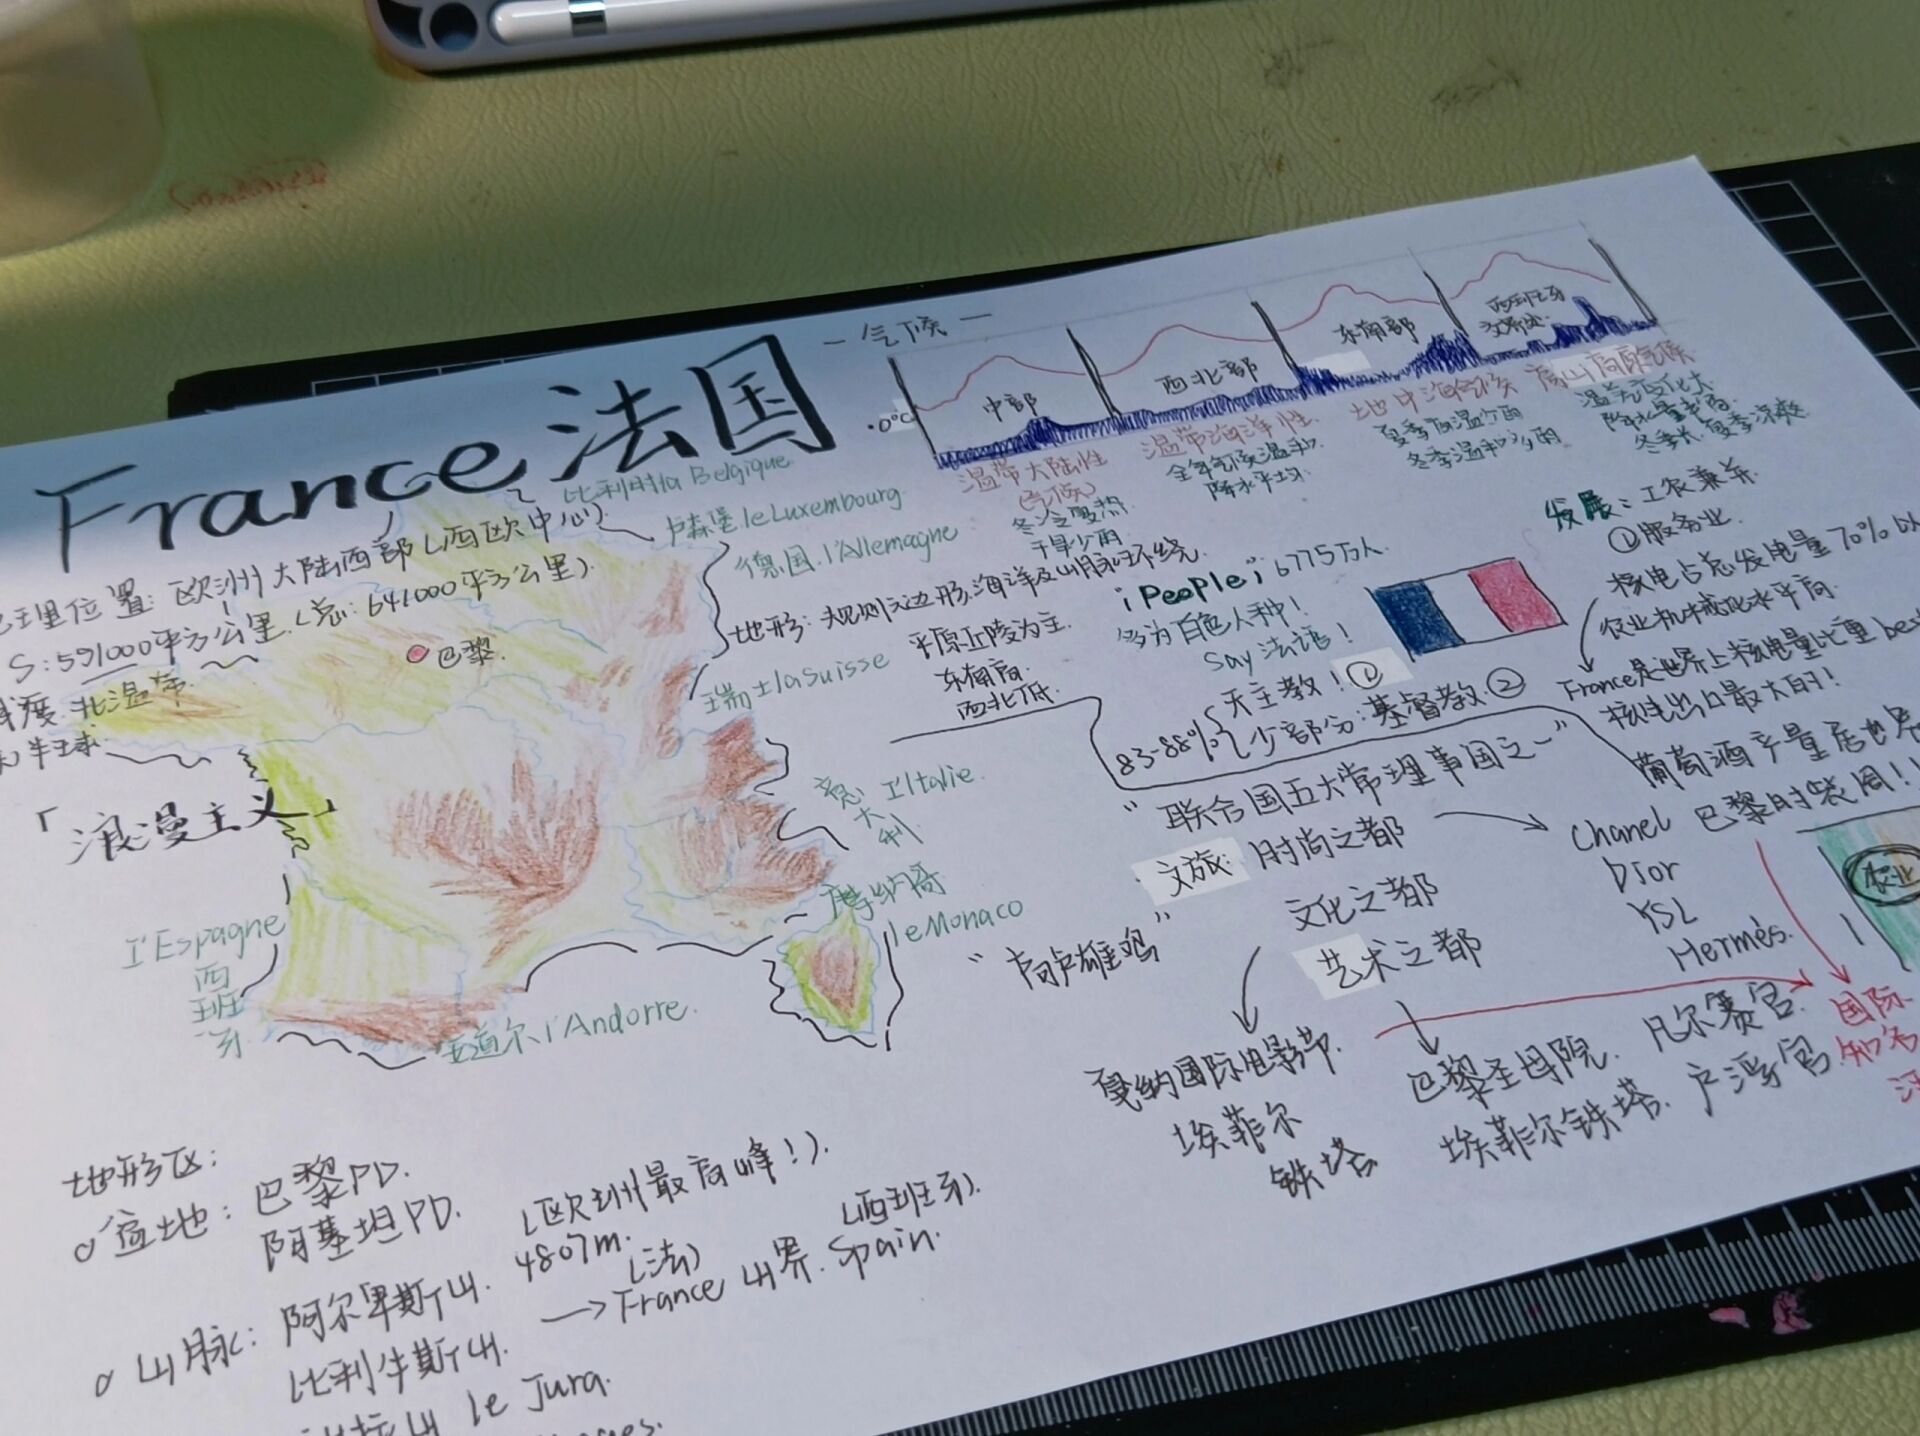 France 法国
地理位置: 欧洲大陆西部(西欧中心).
S: 551000平方公里.(总: 641000平方公里).
纬度: 北温带.
北半球.
「浪漫主义」
巴黎.
比利时la Belgique
卢森堡 le Luxembourg.
德国. l'Allemagne
瑞士la Suisse
意大利
l'Italie.
摩纳哥
le Monaco
安道尔 l'Andorre.
l'Espagne
西班牙
地形: 规则六边形,海洋及山脉环绕.
平原丘陵为主.
东南高
西北低.
- 气候 -
0°C
中部
西北部
东南部
西班牙
交界处
温带大陆性
(气候)
冬冷夏热
干旱少雨
温带海洋性.
全年气候温和
降水平均.
地中海气候
夏季高温少雨
冬季温和多雨
高山高原气候.
降水量
冬季长.夏季凉爽
¡People¡ 6775万人
多为白色人种!
Say 法语!
83-88% 天主教! ①
少部分: 基督教.②
发展: 工农兼并
①服务业.
核电占总发电量70%以
农业机械化水平高.
France是世界上核电量比重best
核电出口最大的!
葡萄酒产量居世界
巴黎时装周!!
"联合国五大常理事国之一"
文旅: 时尚之都
文化之都
艺术之都
Chanel
Dior
YSL
Hermés.
"高卢雄鸡"
戛纳国际电影节.
埃菲尔
铁塔
巴黎圣母院. 凡尔赛宫.
埃菲尔铁塔. 卢浮宫.
国际
知名
农业
地形区:
盆地: 巴黎PD.
阿基坦PD.
山脉: 阿尔卑斯山. 4807m. (欧洲最高峰!).
比利牛斯山. → France(法) 山界. Spain.(西班牙).
山 le Jura.